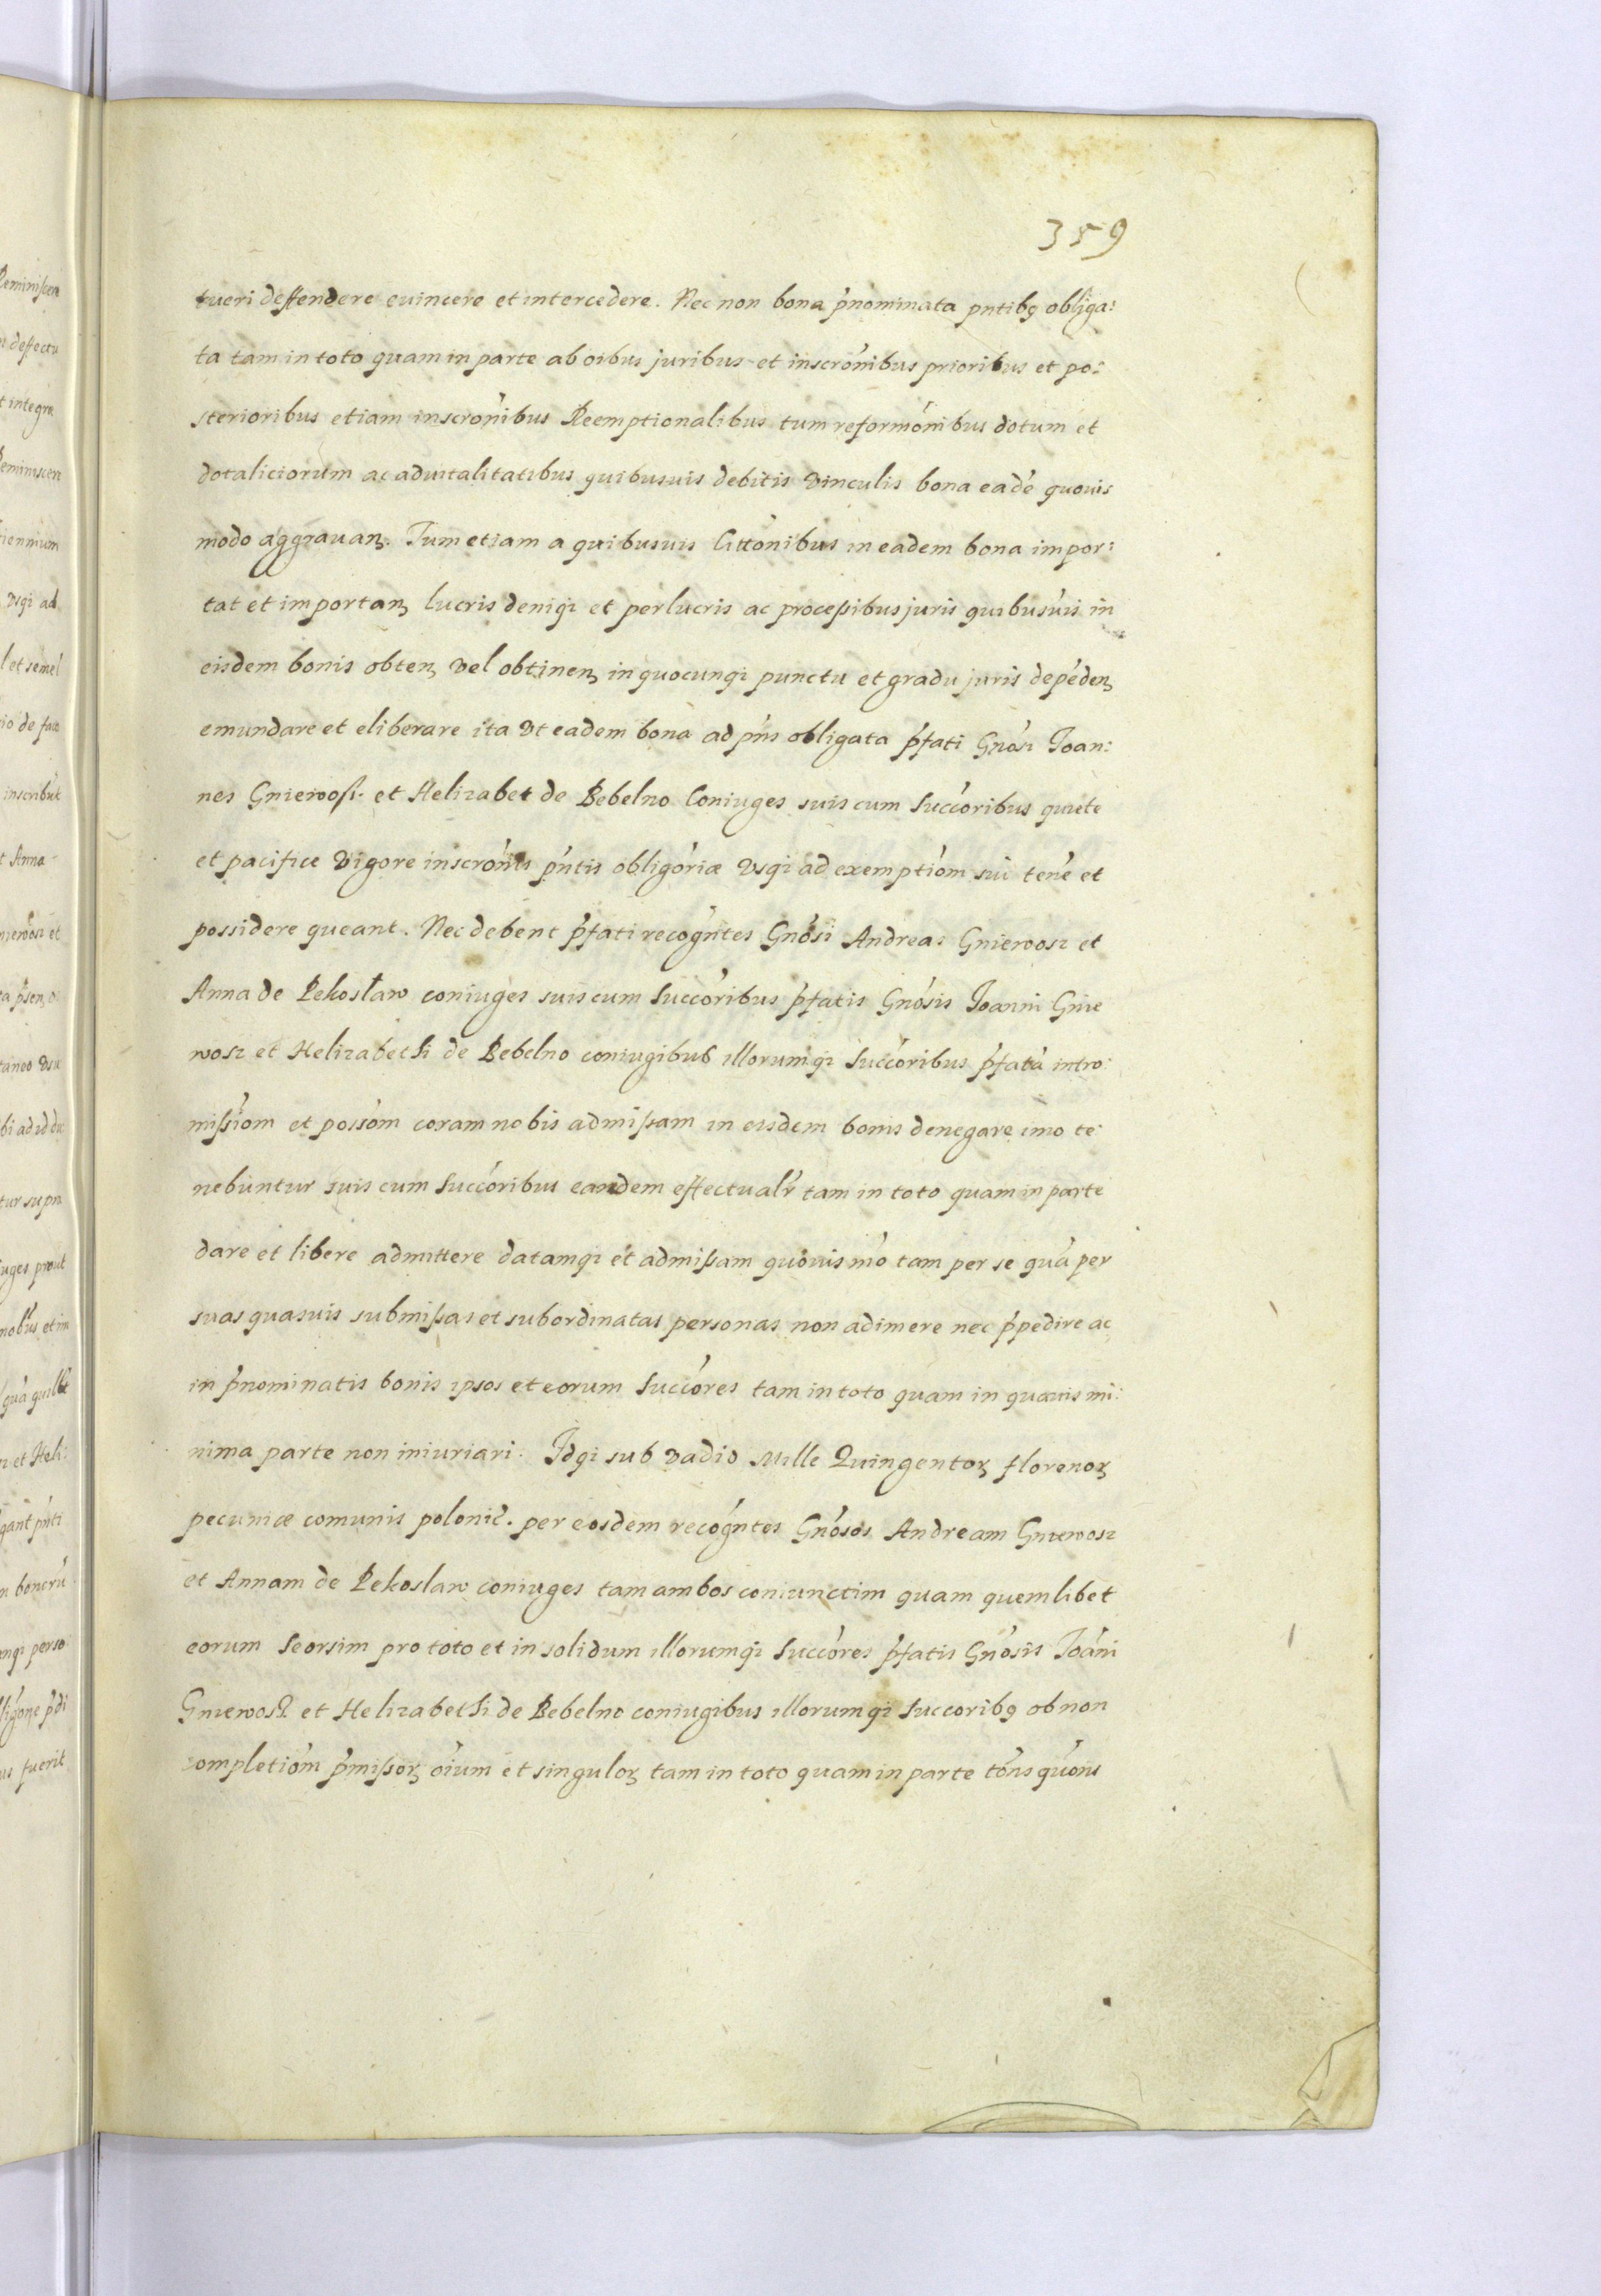 359
tueri deffendere euincere et intercedere. Nec non bona p̄nominata pntibꝰ obliga:
ta tam in toto quam in parte ab oibus juribus et inscrōnibus prioribus et po:
sterioribus etiam inscrōnibus Reemptionalibus tum reformōnibus dotum et
dotaliciorum ac aduitalitatibus quibusuis debitis vinculis bona eadē quouis
modo aggrauanꝫ. Tum etiam a quibusuis littōnibus in eadem bona impor:
tat et importanꝫ lucris deniqꝫ et perlucris ac processibus juris quibusuis in
eisdem bonis obtenꝫ vel obtinenꝫ in quocunqꝫ punctu et gradu juris depēdenꝫ
emundare et eliberare ita vt eadem bona ad pn̄s obligata p̄fati Gnōsi Joan:
nes Gniewosz et Helizabet de Bebelno Coniuges suis cum Succōribus quiete
et pacifice vigore inscrōnis pn̄tis obligōriæ vsqꝫ ad exemptiōm sui tenē et
possidere queant. Nec debent p̄fati recogn̄tes Gnōsi Andreas Gniewosz et
Anna de Pekosław coniuges suis cum Succōribus p̄fatis Gnōsis Joanni Gnie
wosz et Helizabethi de Bebelno coniugibus illorumqꝫ Succōribus p̄fatā intro:
missiōm et possōm coram nobis admissam in eisdem bonis denegare imo te:
nebuntur suis cum Succōribus eandem effectualr̄ tam in toto quam in parte
dare et libere admittere datamqꝫ et admissam quouis mō tam per se quā per
suas quasuis submissas et subordinatas personas non adimere nec p̄pedire ac
in p̄nominatis bonis ipsos et eorum Succōres tam in toto quam in quauis mi:
nima parte non iniuriari. Idqꝫ sub vadio Mille Quingentoꝝ florenoꝝ
pecuniæ comunis polonic̄. per eosdem recogn̄tes Gnōsos Andream Gniewosz
et Annam de Pekoslaw coniuges tam ambos coniunctim quam quemlibet
eorum Seorsim pro toto et in solidum illorumqꝫ Succōres p̄fatis Gnōsis Joāni
Gniewosz et Helizabethi de Bebelno coniugibus illorumqꝫ Succoribꝰ ob non
completiōm p̄missoꝝ oīum et singuloꝝ tam in toto quam in parte tōns quōuis